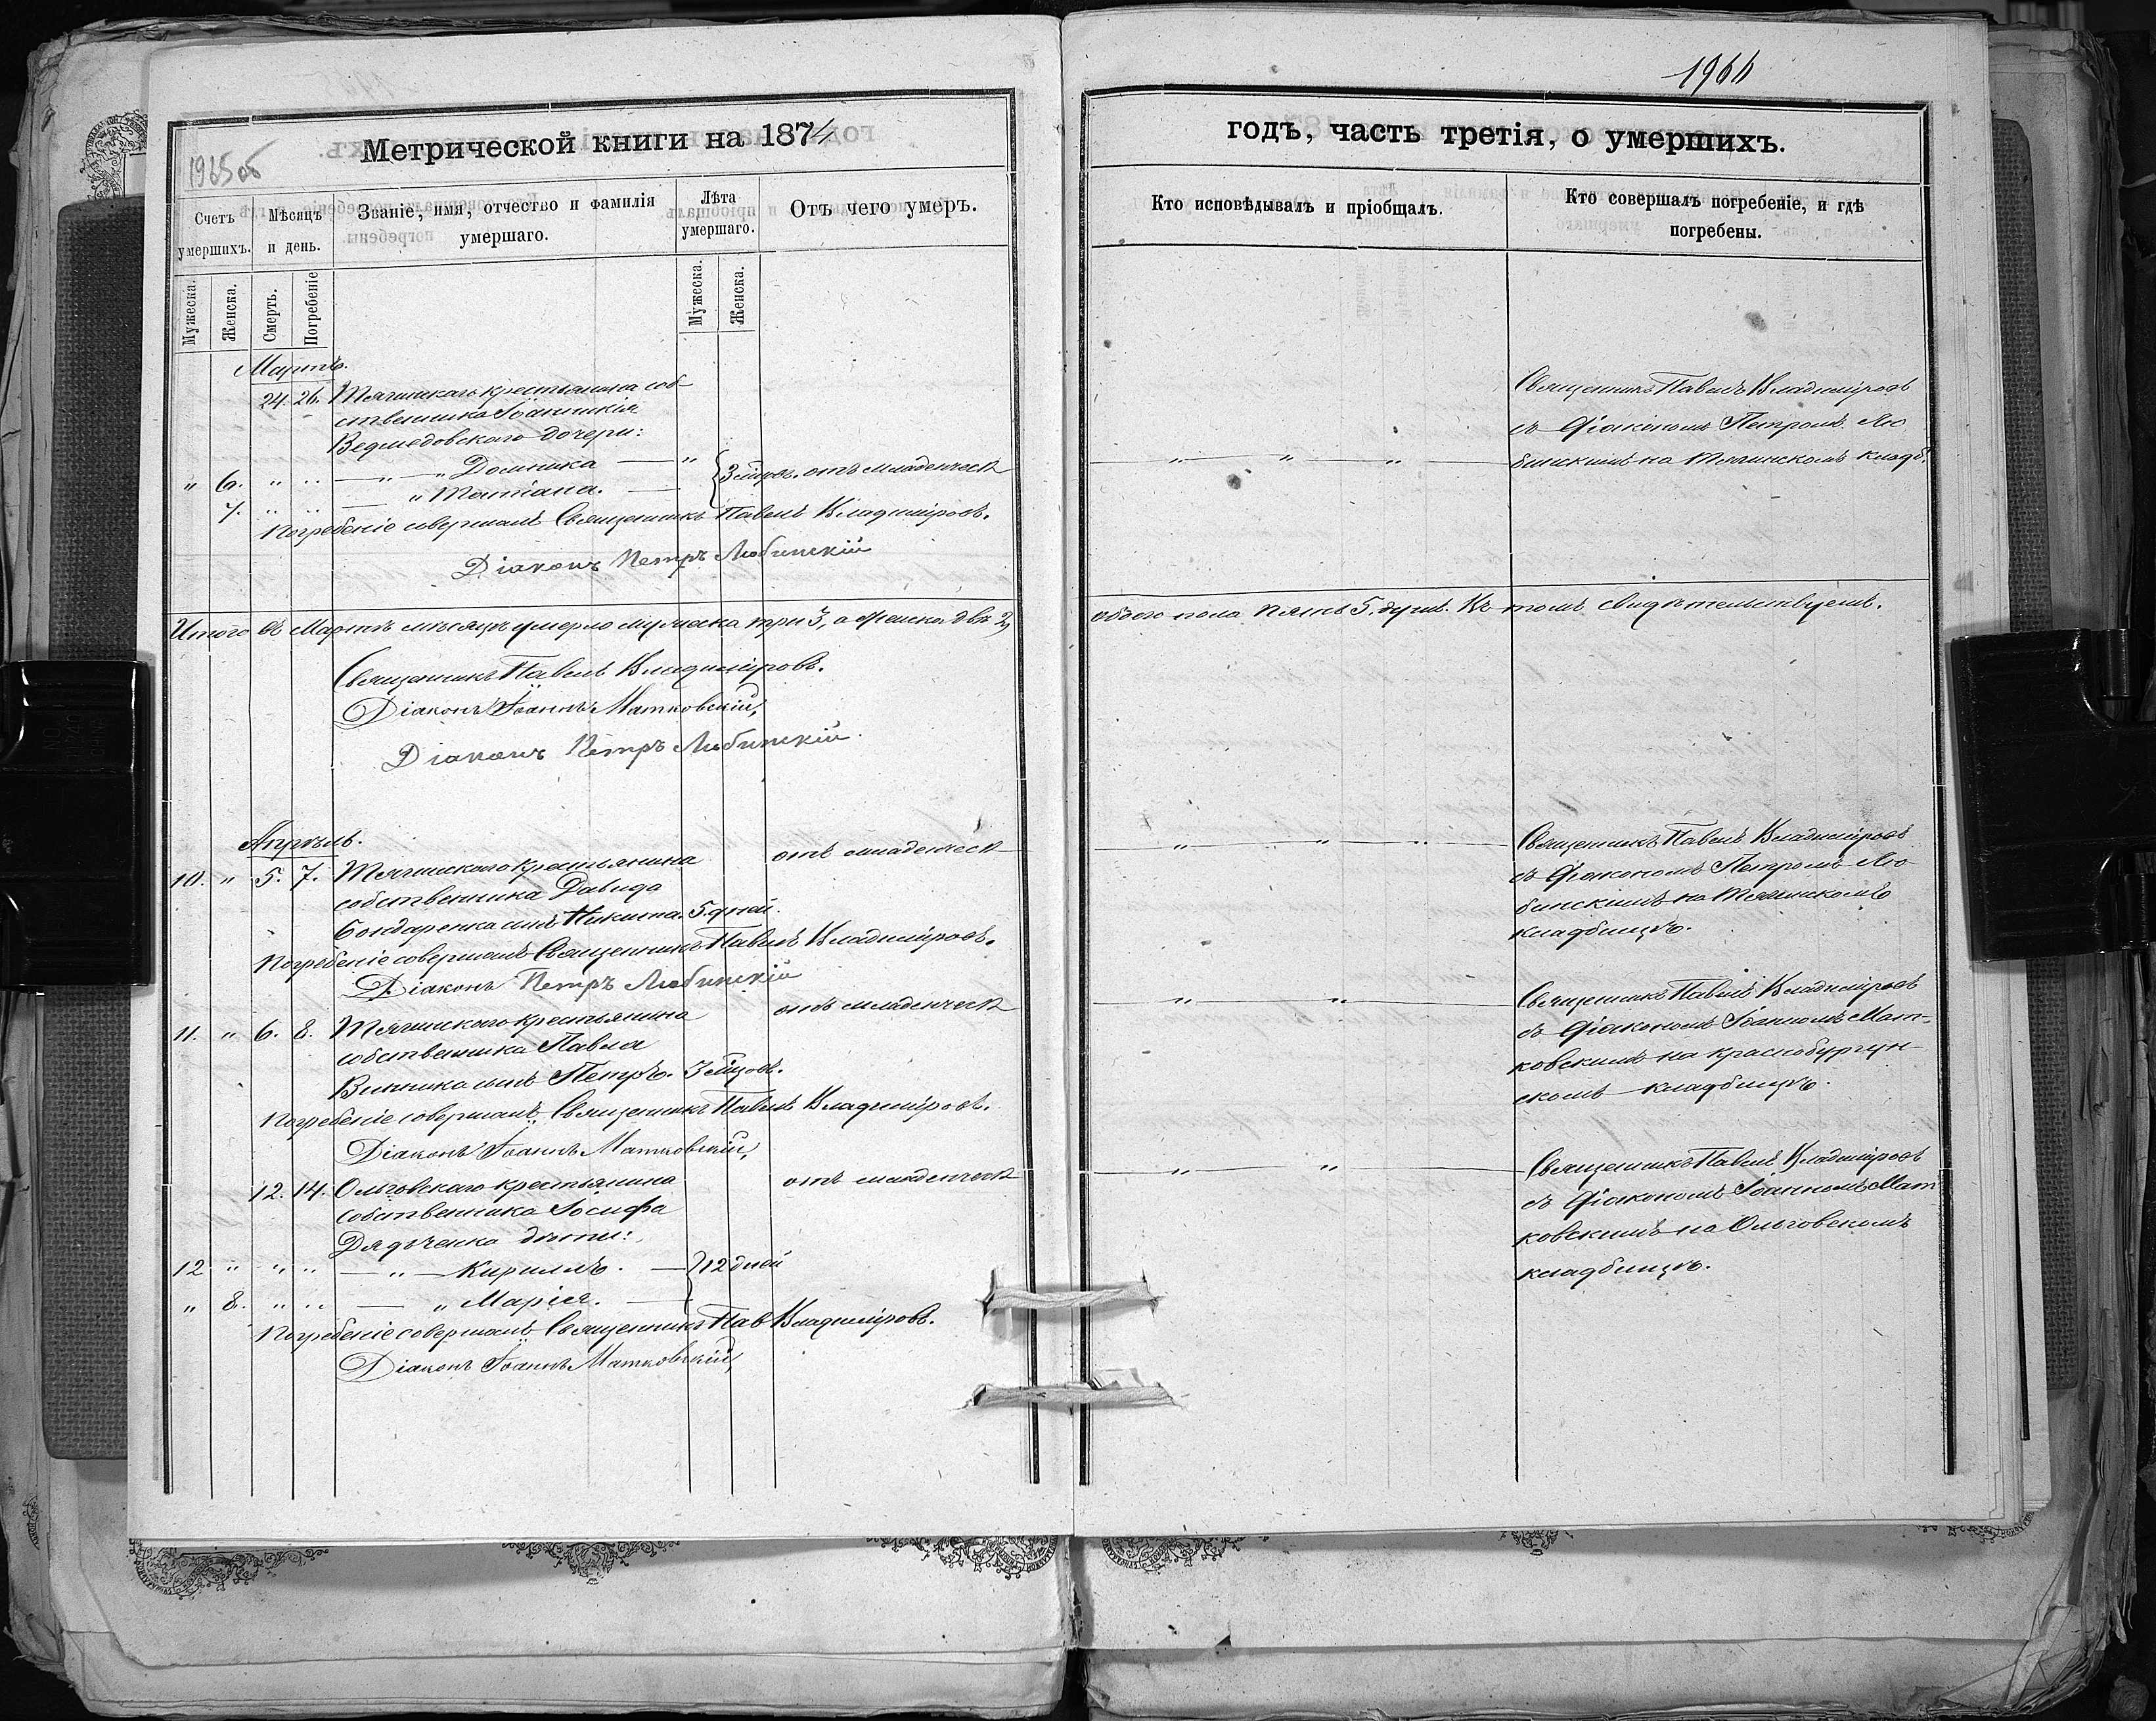 1966
Метрической книги на 1874
1965об
годъ, часть третія, о умершихъ.
Счетъ умершихъ.
Мѣсяцъ и день.
Званіе, имя, отчество и фамилія умершаго.
Лѣта умершаго.
Отъ чего умеръ.
Кто исповѣдывалъ и пріобщалъ.
Кто совершалъ погребеніе, и гдѣ погребены.
Мужеска.
Женска.
Смерть.
Погребеніе
Мужеска.
Женска.
Мартъ.
24. 26. Тягинскаго крестьянина соб-
ственника Іоанникія
Ведмедовскаго дочери:
" 6. " " — " — " Домника — "
7. " " — " Татіана. — 3 мѣсяц. отъ младенческ
Погребеніе совершалъ Священникъ Павелъ Владиміровъ.
Діаконъ Петръ Любинскій
Священникъ Павелъ Владиміровъ
съ Діакономъ Петромъ Лю
бинскимъ на Тягинскомъ кладб.
Итого въ Мартѣ мѣсяцѣ умерло мужеска три 3, а женска двѣ 2,
обоего пола пять 5. душъ. Въ томъ свидѣтельствуемъ.
Священникъ Павелъ Владиміровъ.
Діаконъ Іоаннъ Матковскій,
Діаконъ Петръ Любинскій.
Апрѣль.
10. " 5. 7. Тягинскаго крестьянина отъ младенческ
собственника Давида
Бондаренка сынъ Никита. 5. дней.
Погребеніе совершалъ Священникъ Павелъ Владиміровъ.
Діаконъ Петръ Любинскій
Священникъ Павелъ Владиміровъ
съ Діакономъ Петромъ Лю
бинскимъ на Тягинскомъ
кладбищѣ.
11. " 6. 8. Тягинскаго крестьянина отъ младенческ
собственника Павла
Винника сынъ Петръ. 3 мѣсяцовъ.
Погребеніе совершалъ Священникъ Павелъ Владиміровъ.
Діаконъ Іоаннъ Матковскій,
Священникъ Павелъ Владиміровъ
съ Діакономъ Іоанномъ Мат-
ковскимъ на Краснобургун-
скомъ кладбищѣ.
12. 14. Ольговскаго крестьянина отъ младенческ
собственника Іосифа
Дядченка дѣти:
12 " " " — " — Кириллъ. — 12 дней
" 8. " " — " Марія. —
Погребеніе совершалъ Священникъ Пав Владиміровъ.
Діаконъ Іоаннъ Матковскій,
Священникъ Павелъ Владиміровъ
съ Діакономъ Іоанномъ Мат
ковскимъ на Ольговскомъ
кладбищѣ.